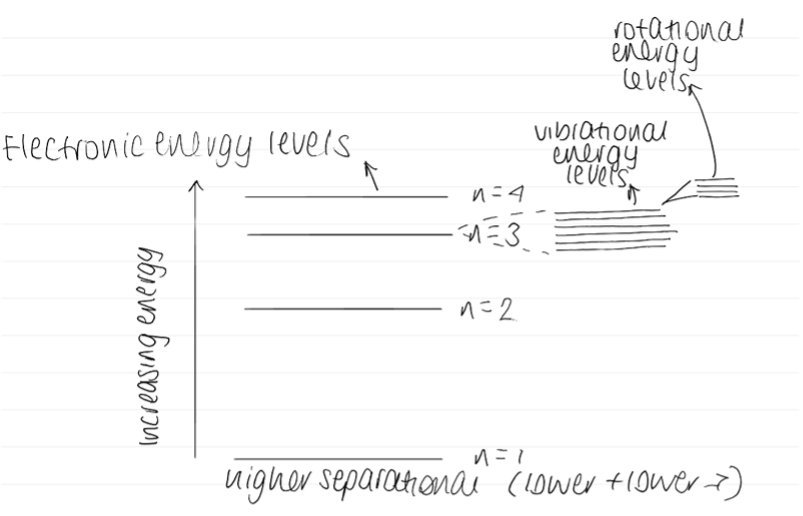 rotational
energy
levels
Electronic energy levels
vibrational
energy
levels
n=4
n=3
n=2
Increasing energy
n=1
higher separational (lower + lower →)